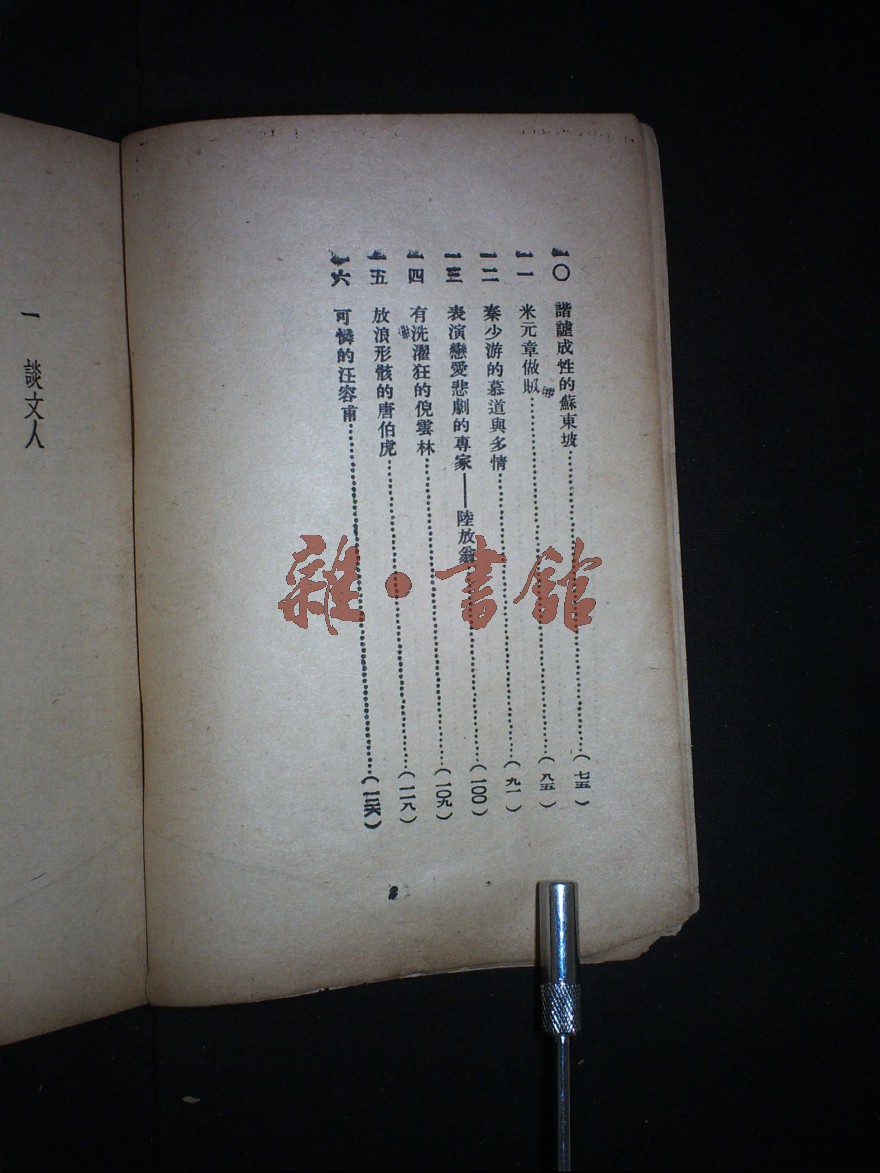 一〇　諧謔成性的蘇東坡……（七五）
一一　米元章做賊……（八五）
一二　秦少游的慕道與多情……（九一）
一三　表演戀愛悲劇的專家——陸放翁……（一〇〇）
一四　有洗濯狂的倪雲林……（一〇九）
一五　放浪形骸的唐伯虎……（一一八）
一六　可憐的汪容甫……（一二六）
2
一　談文人
雜·書館